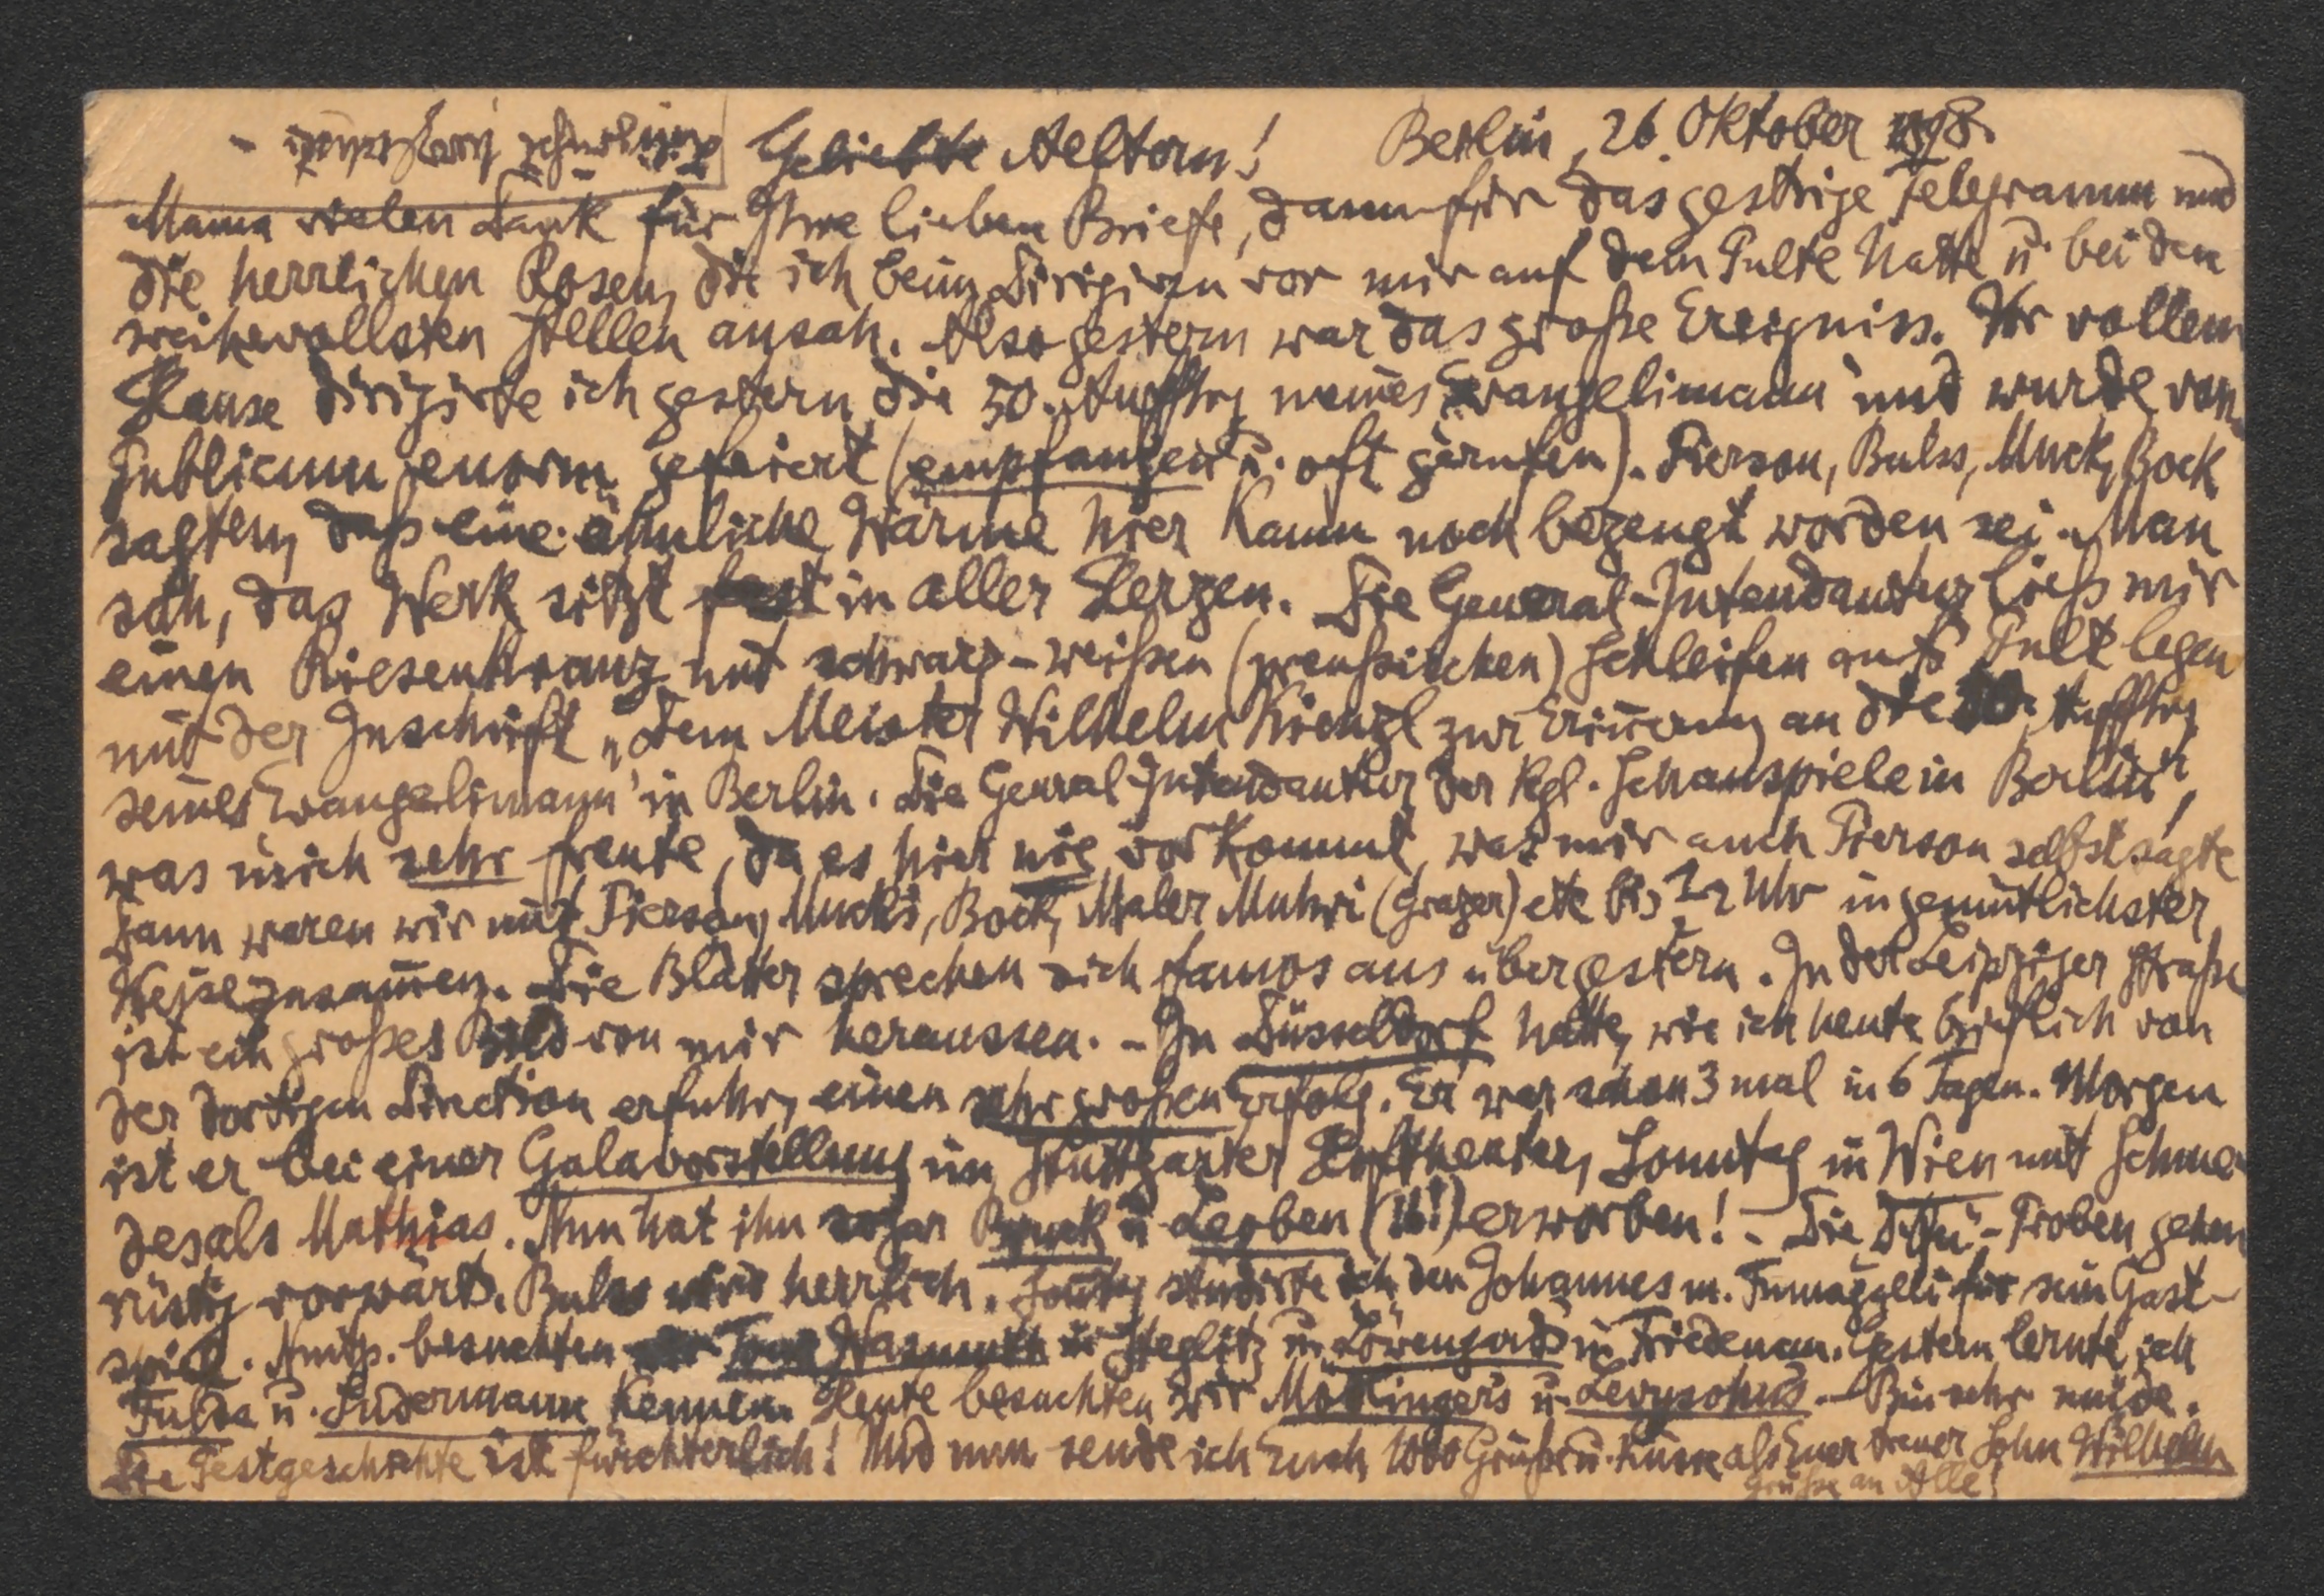 Geliebte Aeltern! Berlin, 26. Oktober 1898.
Mama vielen Dank für Ihre lieben Briefe, dann für das gestrige Telegramm und
die herrlichen Rosen, die ich beim Dirigiren vor mir auf dem Pulte hatte u. bei den
weihevollsten Stellen ansah. Also gestern war das große Ereigniss. Vor vollem
Hause dirigirte ich gestern die 50. Auffhrg meines Evangelimann und wurde vom
Publicum enorm gefeiert (empfangen u. oft gerufen). Pierson, Bulss, Muck, Bock
sagten, daß eine ähnliche Wärme hier kaum noch bezeugt worden sei. Man
sah, das Werk sitzt fest in aller Herzen. Die General-Intendantur ließ mir
einen Riesenkranz mit schwarz-weißen (preußischen) Schleifen aufs Pult legen
mit der Inschrift „Dem Meister Wilhelm Kienzl zur Erinnerung an die 50. Auffhrg
seines Evangelimann' in Berlin. Die General-Intendantur der Kgl. Schauspiele in Berlin",
was mich sehr freute, da es hier nie vorkommt, was mir auch Pierson selbst sagte
Dann waren wir mit Pierson, Mucks, Bock, Maler Muhri (Grazer) etc bis 1/2 2 Uhr in gemütlichster
Weise zusammen. Die Blätter sprechen sich famos aus über gestern. In der Leipziger Straße
ist ein großes Bild von mir heraussen. - In Düsseldorf hatte, wie ich heute brieflich von
der dortigen Direction erfuhr, einen sehr großen Erfolg. Er war schon 3 mal in 6 Tagen. Morgen
ist er bei einer Galavorstellung im Stuttgarter Hoftheater, Sonntag in Wien mit Schme-
des als Mathias. Nun hat ihn sogar Bruck u. Leoben (!!) erworben! - Die - Proben gehen
rüstig vorwärts. Bulss wird herrlich. studirte ich den Johannes m. Fumagalli für sein Gast-
spiel. Nmttg. besuchten wir Wasmuth in Steglitz u. Löwengard in Friedenau. Gestern lernte ich
Fulda u. Sudermann kennen. Heute besuchten wir Mödlinger's u. Levysohns. - Bin sehr müde.
Die Pestgeschichte ist fürchterlich! Und nun sende ich Euch 1000 Grüße u. Küsse als Euer treuer Sohn Wilhelm
Grüße an Alle!